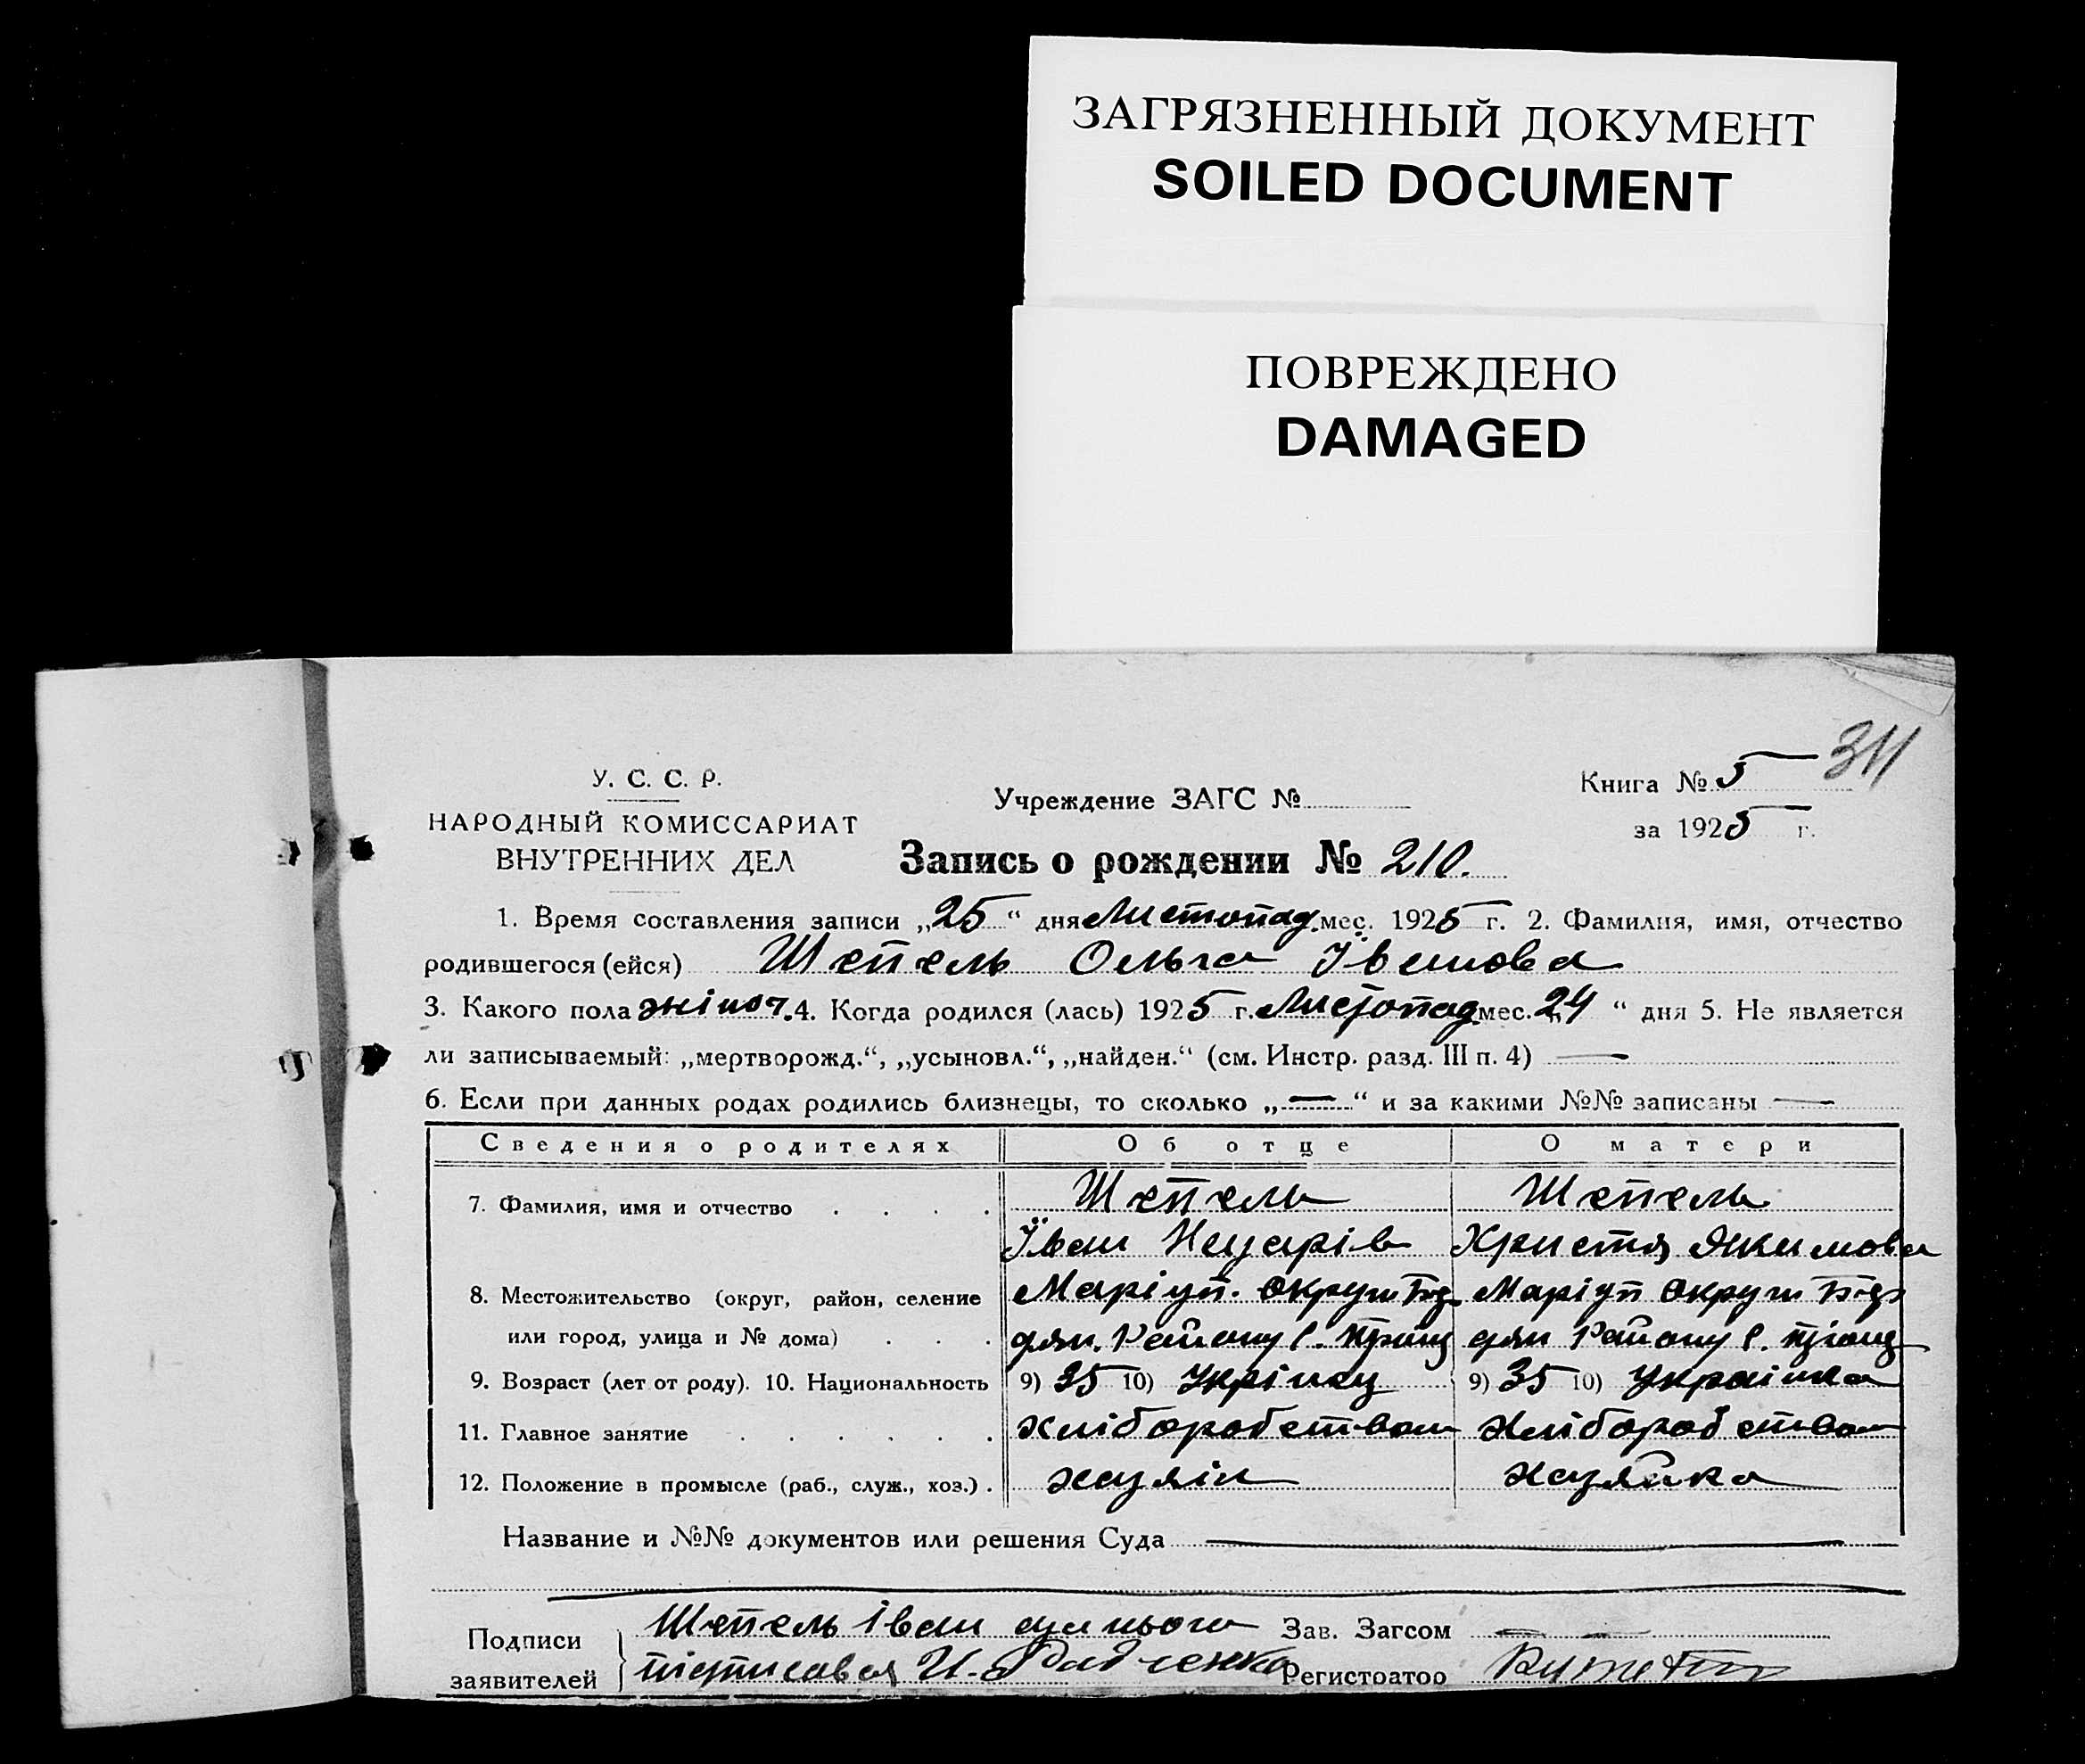 ЗАГРЯЗНЕННЫЙ ДОКУМЕНТ
SOILED DOCUMENT
ПОВРЕЖДЕНО
DAMAGED
311
У. С. С. Р.
НАРОДНЫЙ КОМИССАРИАТ
ВНУТРЕННИХ ДЕЛ
Учреждение ЗАГС №
Книга № 5
за 1925 г.
Запись о рождении № 210.
1. Время составления записи „25“ дня Листопад. мес. 1925 г. 2. Фамилия, имя, отчество
родившегося (ейся) Шепель Ольга Іванова
3. Какого пола жіноч. 4. Когда родился (лась) 1925 г. Листопад мес. „24“ дня 5. Не является
ли записываемый: „мертворожд.“, „усыновл.“, „найден.“ (см. Инстр. разд. III п. 4) —
6. Если при данных родах родились близнецы, то сколько „—“ и за какими №№ записаны —
Сведения о родителях Об отце О матери
7. Фамилия, имя и отчество . . . . Шепель Шепель
Іван Назарів Христя Якимова
8. Местожительство (округ, район, селение Маріуп. округи Маріуп округи
или город, улица и № дома) . . . Району с. Району с.
9. Возраст (лет от роду). 10. Национальность 9) 35 10) Укрінец 9) 35 10) Українка
11. Главное занятие . . . . . . хліборобством хліборобством
12. Положение в промысле (раб., служ., хоз.) . хазяін хазяйка
Название и №№ документов или решения Суда
Подписи
заявителей
Шепель Іван за нього
підписався И. Радченко
Зав. Загсом
Регистратор